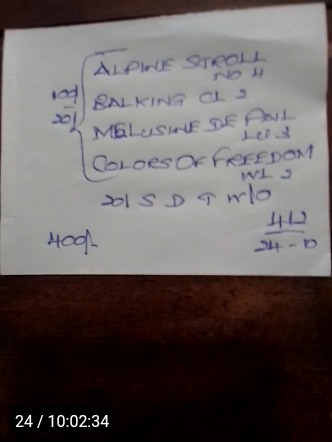 ALPINE STROLL
NO 4
BALKING CL 2
MELUSINE DE PAIL
LU 3
COLORS OF FREEDOM
WL 2
20/ S D T W/O
400/-
24-10
24 / 10:02:34